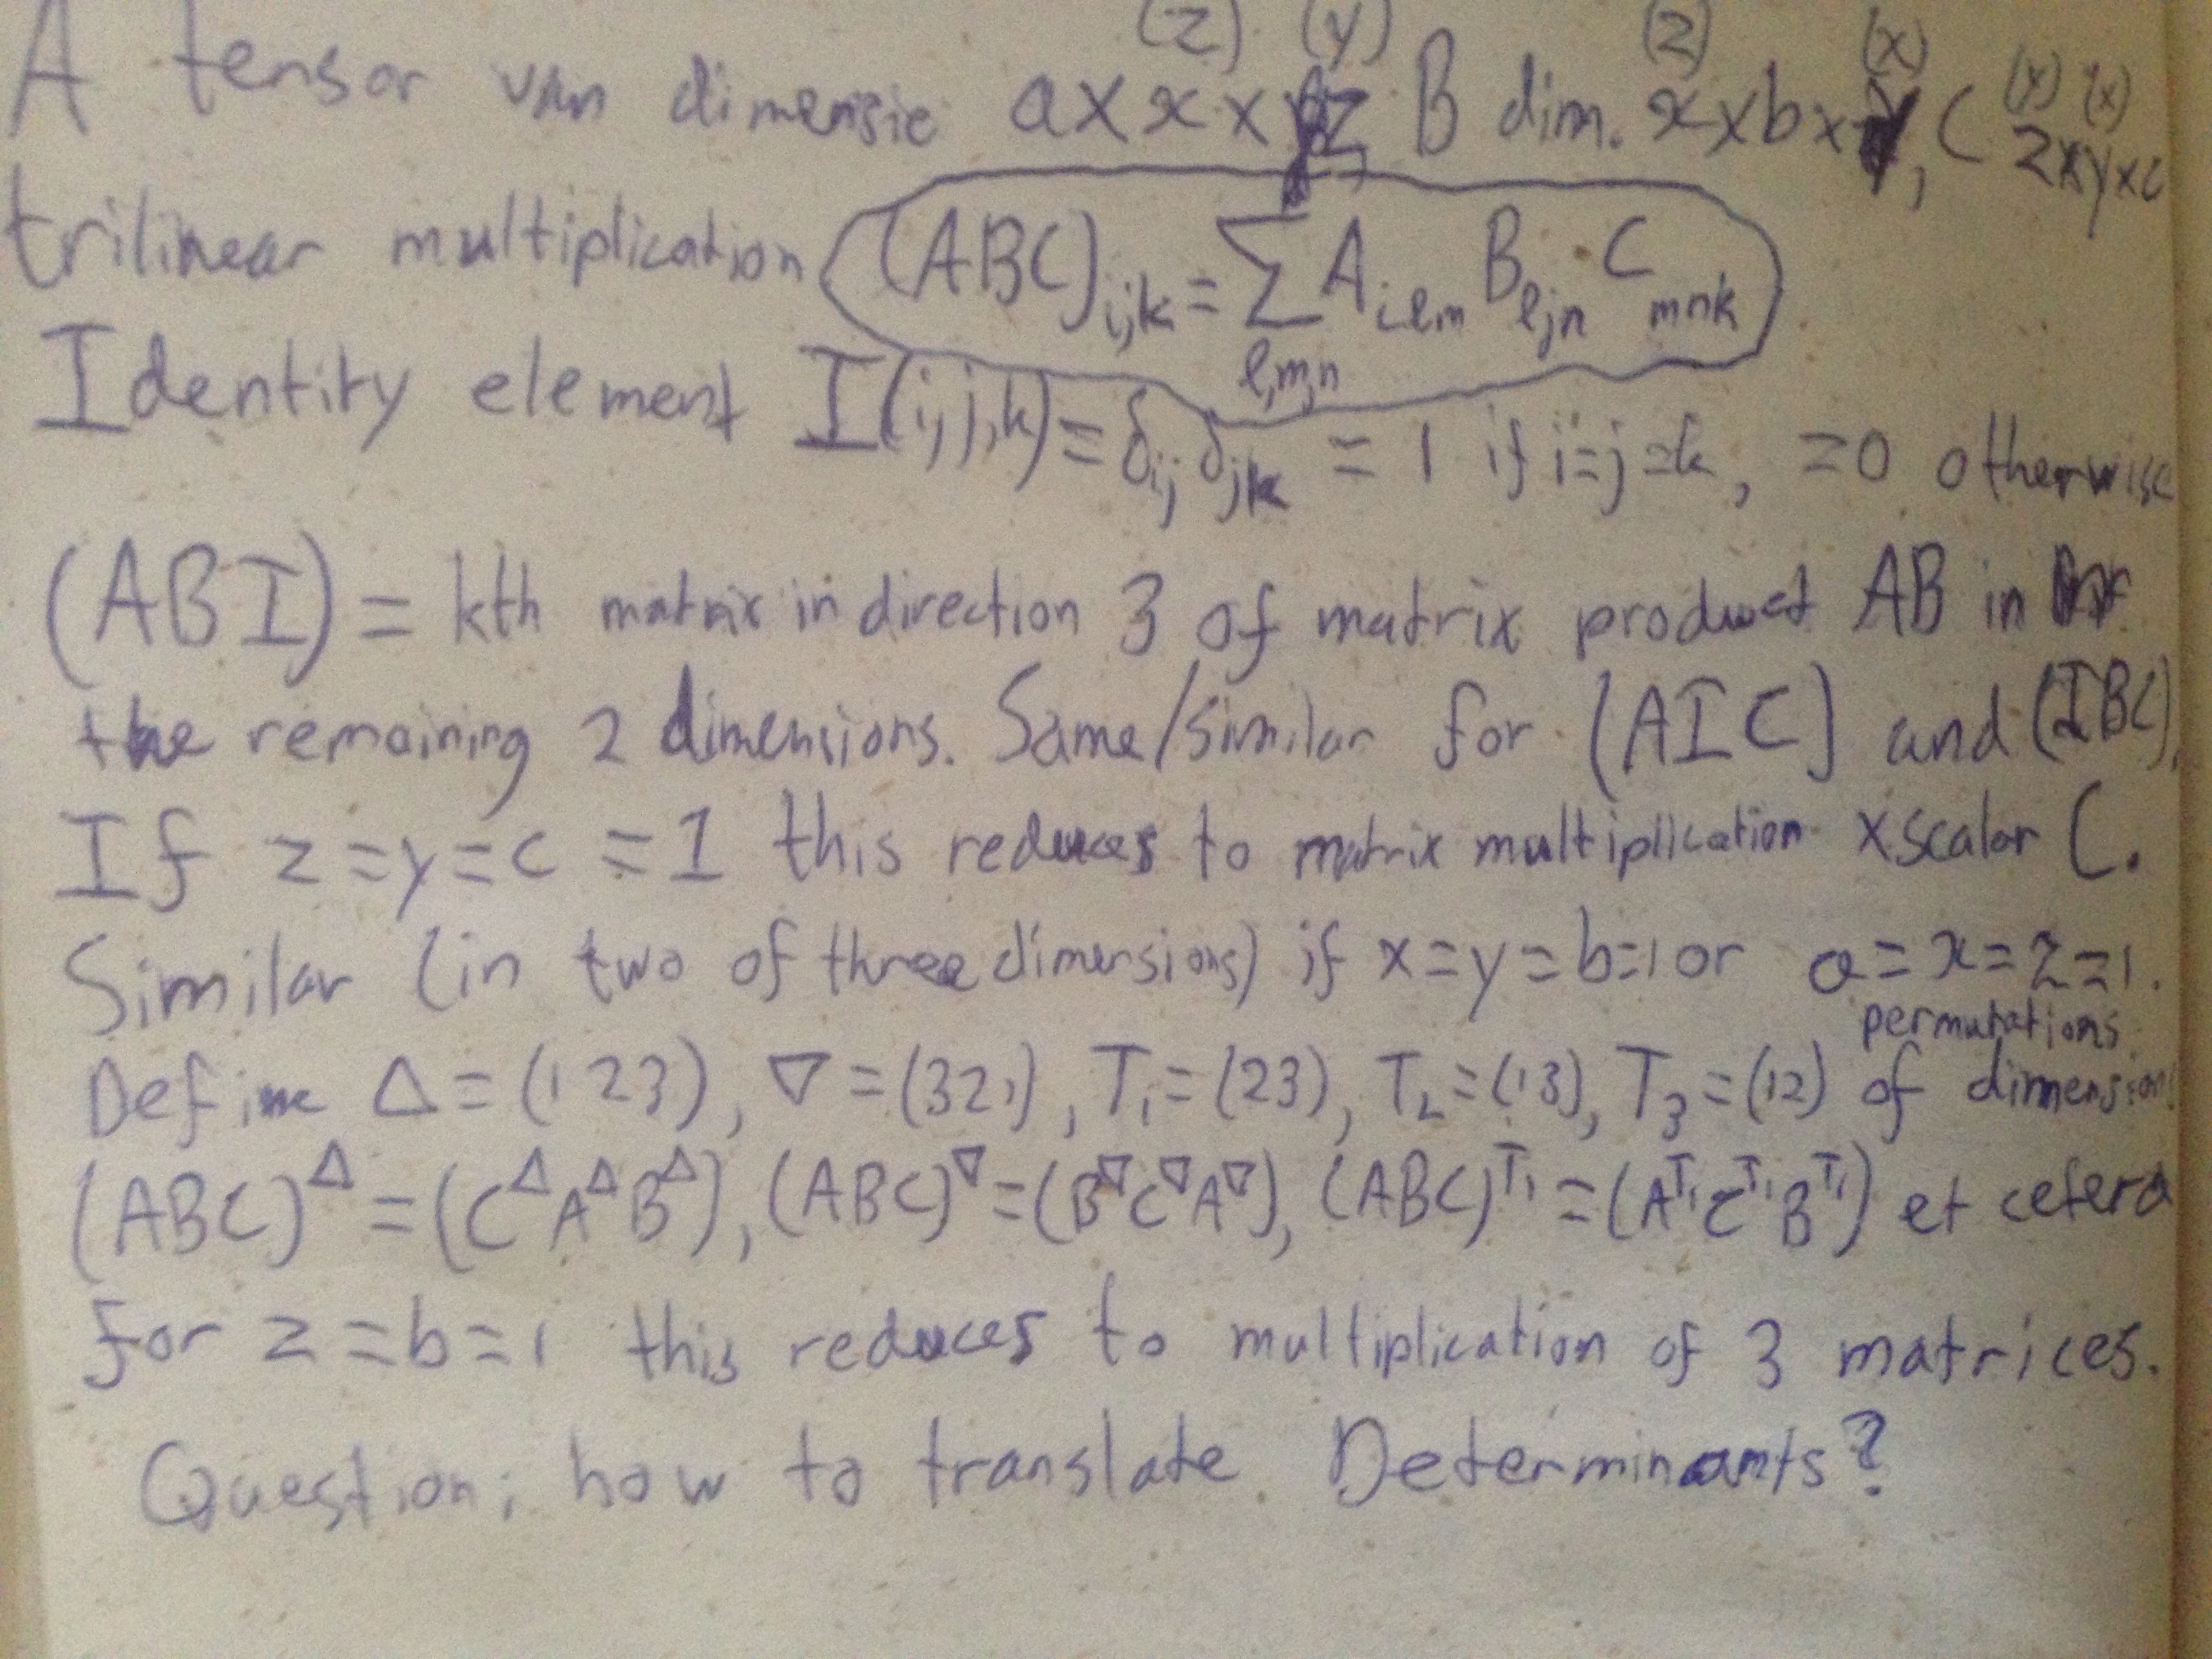 (z) (y) (z) (x) (y) (x)
A tensor van dimensie a×x×z, B dim. x×b×y, C z×y×c
trilinear multiplication (ABC)ijk = Σ Aiℓm Bℓjn · Cmnk
ℓ,m,n
Identity element I(i,j,k) = δij δjk = 1 if i=j=k, =0 otherwise
(ABI) = kth matrix in direction 3 of matrix product AB in
the remaining 2 dimensions. Same/similar for (AIC) and (IBC).
If z=y=c=1 this reduces to matrix multiplication ×scalar C.
Similar (in two of three dimensions) if x=y=b=1 or a=x=z=1.
permutations
Define Δ=(123), ∇=(321), T₁=(23), T₂=(13), T₃=(12) of dimensions
(ABC)^Δ=(C^Δ A^Δ B^Δ), (ABC)^∇=(B^∇ C^∇ A^∇), (ABC)^T₁=(A^T₁ C^T₁ B^T₁) et cetera
for z=b=1 this reduces to multiplication of 3 matrices.
Question; how to translate Determinants?